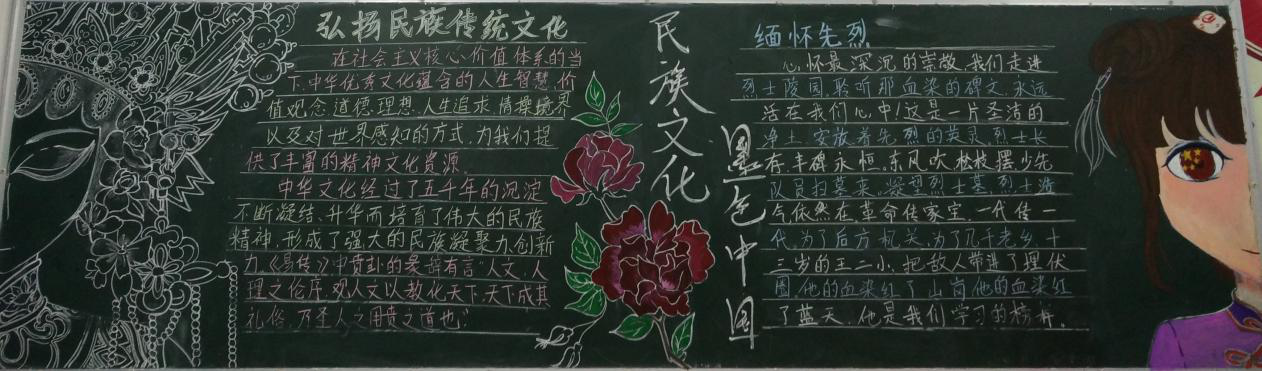 弘扬民族传统文化
在社会主义核心价值体系的当
下,中华优秀文化蕴含的人生智慧、价
值观念、道德理想、人生追求、情操境界
以及对世界感知的方式,为我们提
供了丰富的精神文化资源。
中华文化经过了五千年的沉淀
不断凝结、升华而培育了伟大的民族
精神,形成了强大的民族凝聚力、创新
力《易传》中贲卦的彖辞有言"人文,人
理之伦序,观人文以教化天下,天下成其
礼俗,乃圣人之用贲之道也"
民族文化
墨色中国
缅怀先烈
心怀最深沉的崇敬,我们走进
烈士陵园,聆听那血染的碑文,永远
活在我们心中!这是一片圣洁的
净土,安放着先烈的英灵,烈士长
存,丰碑永恒,东风吹,松枝摆,少先
队员扫墓来,烈士墓,烈士浩
气依然在,革命传家宝,一代传一
代,为了后方机关,为了几千老乡,十
三岁的王二小,把敌人带进了埋伏
圈,他的血染红了山岗,他的血染红
了蓝天,他是我们学习的榜样。